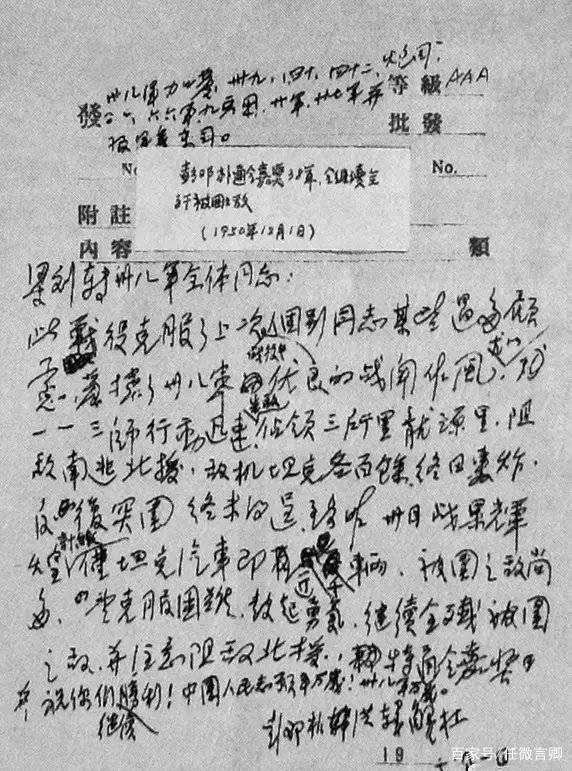 卅八军
卅九，四十，四十二，炮司，
等級AAA
發
六六军，九兵团，廿军，廿七军并
报军委东司。
批發
No.
彭邓朴通令嘉奖38军，令继续全
歼被围之敌
(1950年12月1日)
No.
附註
内容
類
梁刘转卅八军全体同志：
此战役克服了上次个别同志某些过多顾
虑，发挥了卅八军优良的战斗作風，尤以
一一三師行动迅速，先敌占领三所里龙源里，阻
敌南逃北援。敌机坦克各百餘，终日轰炸，
反復突围，终未得逞。至昨卅日战果辉
煌，计仅坦克汽車即近千輛，被围之敌尚
多。望克服困难，鼓起勇气，继续全歼被围
之敌，并注意阻敌北援。特通令嘉奖
并祝你们继续胜利！中国人民志愿军万歳！卅八军万歳。
彭邓朴洪韓解杜
19
百家号/任微言卿